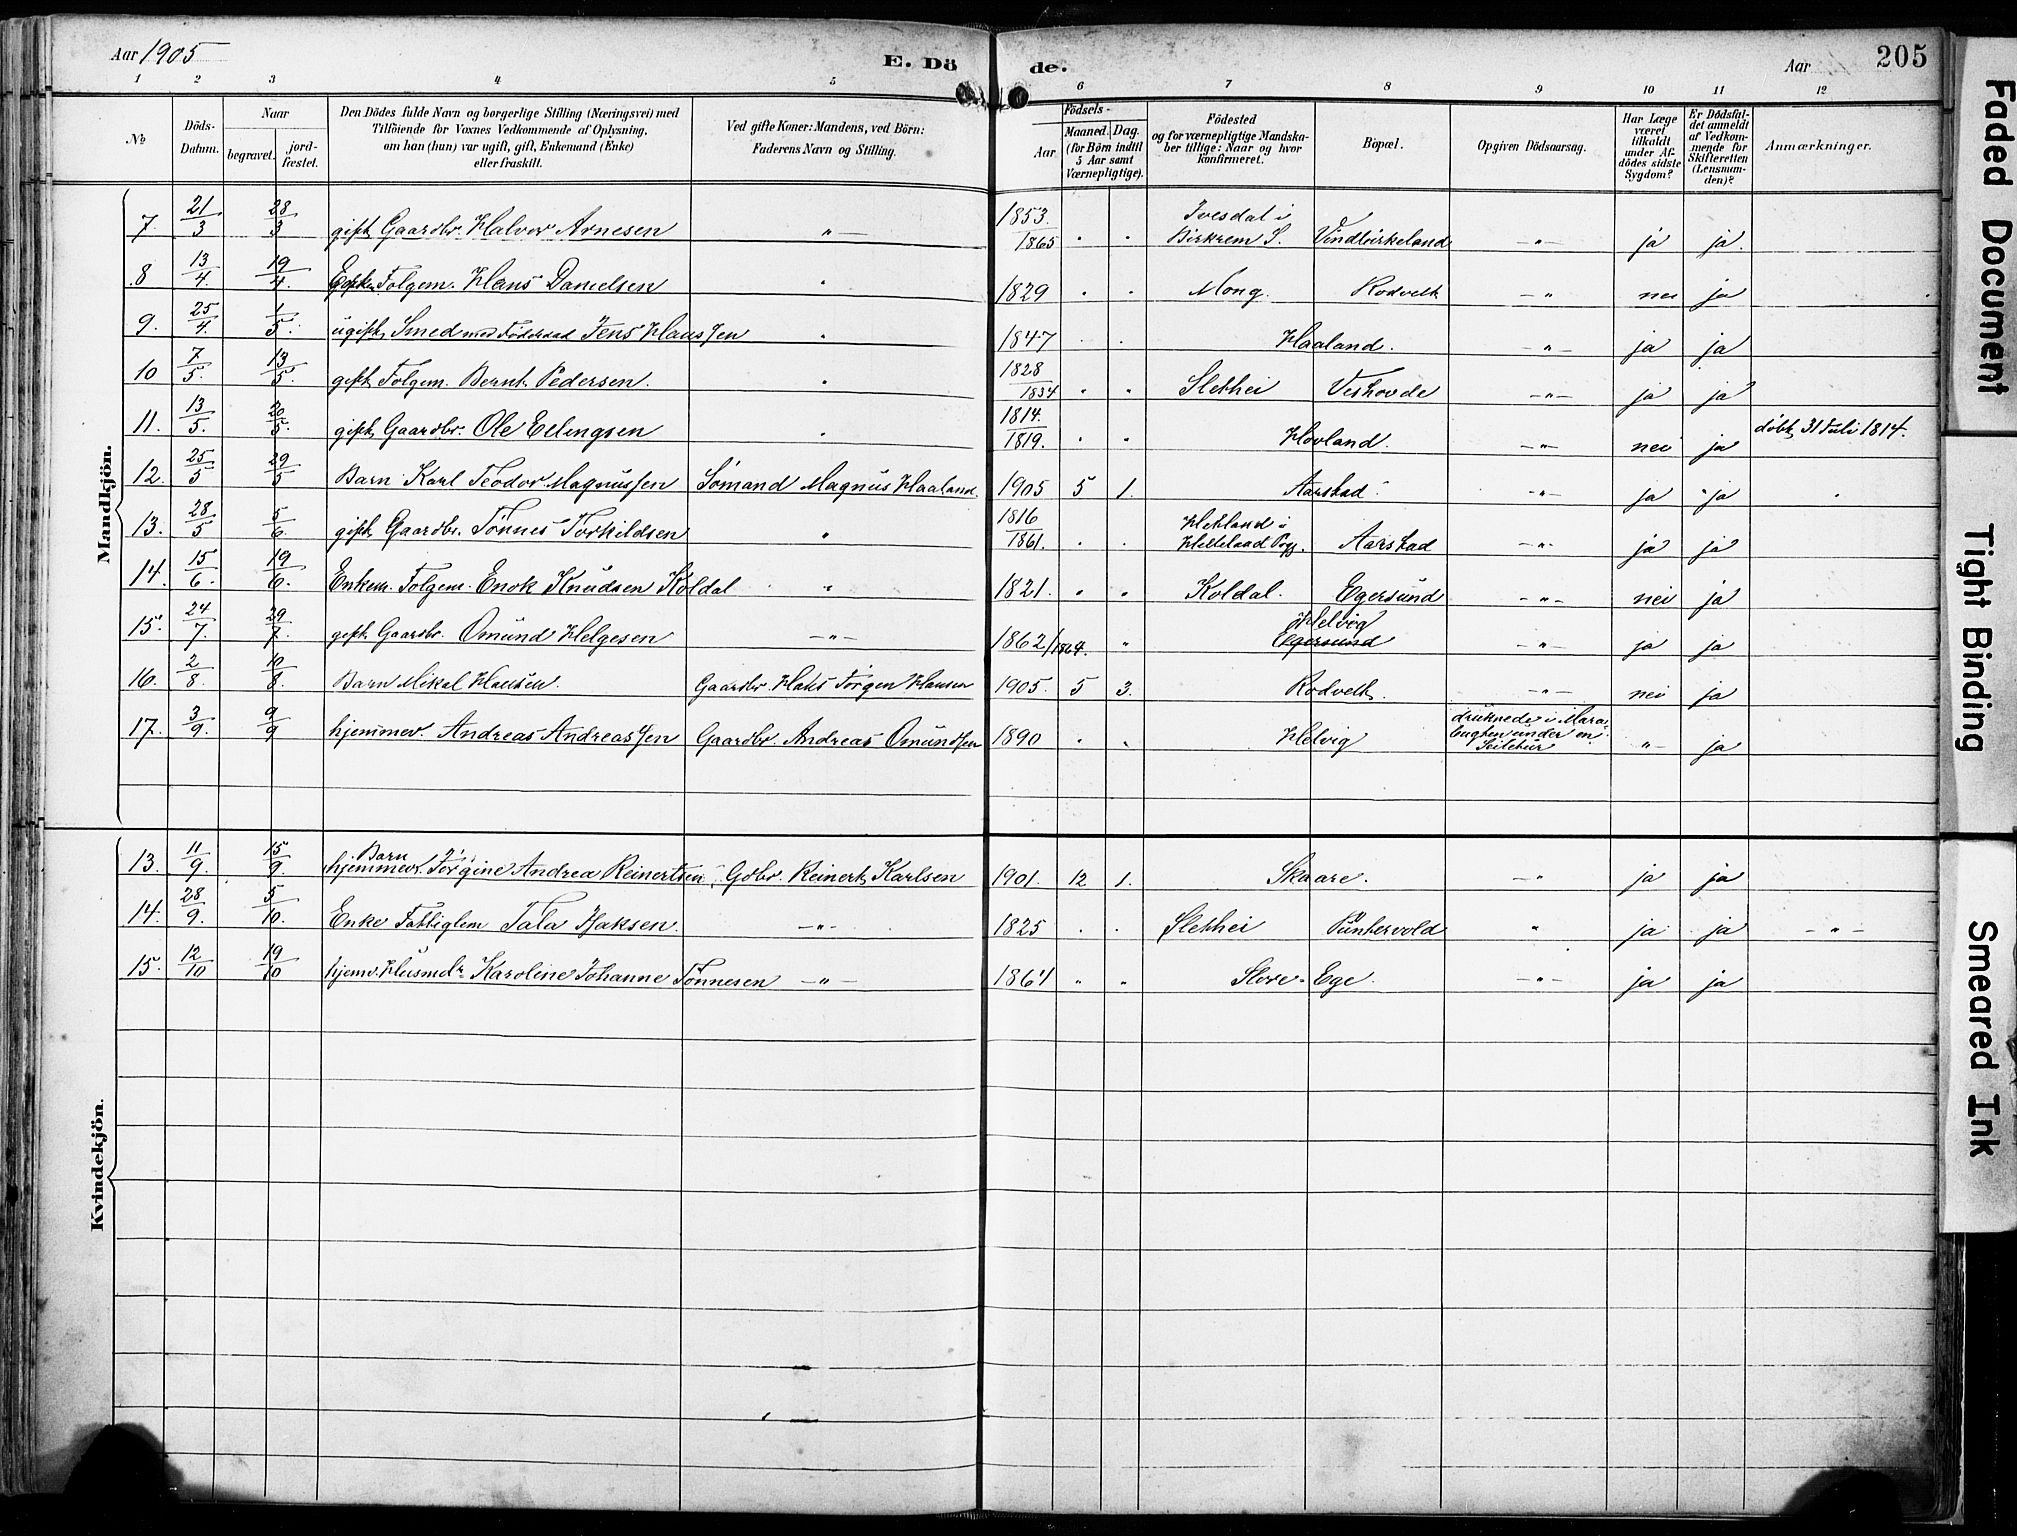 Aar 1905
E. Dö de.
Aar
205
1 2 3 4 5 6 7 8 9 10 11 12
No
Döds-Datum.
Naar
begravet.
jordfæstet.
Den Dödes fulde Navn og borgerlige Stilling (Næringsvei) med
Tilföiende for Voxnes Vedkommende af Oplysning,
om han (hun) var ugift, gift, Enkemand (Enke)
eller fraskilt.
Ved gifte Koner: Mandens, ved Börn:
Faderens Navn og Stilling.
Födsels-
Aar
Maaned. Dag.
(for Börn indtil
5 Aar samt
Værnepligtige).
Födested
og for værnepligtige Mandska-
ber tillige: Naar og hvor
konfirmeret.
Bopæl.
Opgiven Dödsaarsag.
Har Læge
været
tilkaldt
under Af-
dödes sidste
Sygdom?
Er Dödsfal-
det anmeldt
af Vedkom-
mende for
Skifteretten
(Lensman-
den)?
Anmærkninger.
Mandkjön.
7. 21/3 28/3 gift Gaardbr. Halvor Arnesen " 1853/1865 " " Ivesdal i Birkrem S. Vindbirkeland " ja ja.
8 13/4 19/4 Folgem. Hans Danielsen " 1829 " " Mong. Rodvelt " nei ja
9. 25/4. 1/5. ugift Smed med Föderaad Jens Hanssen " 1847 " " Haaland. " ja ja
10 7/5. 13/5. gift Folgem. Bernt Pedersen. " 1828/1834 " " Slethei Veshovde " ja ja
11. 13/5. 20/5. gift Gaardbr. Ole Ellingsen " 1814./1819. " " Hovland. " nei ja döbt 31 Juli 1814.
12. 25/5 29/5 Barn Karl Teodor Magnussen Sömand Magnus Haaland 1905 5 1. Aarstad. " ja ja
13. 28/5 5/6. gift Gaardbr. Tönnes Torkildsen " 1816/1861. " " Hetland i Helleland Pgj. Aarstad " ja ja
14. 15/6. 19/6. Enkem. Folgem. Enok Knudsen Koldal " 1821. " " Koldal. Egersund " nei ja
15. 24/7. 29/7. gift Gaardbr. Omund Helgesen " 1862/1864. " Helvig Egersund " ja ja
16. 2/8. 10/8. Barn Mikal Hansen. Gaardbr. Hans Jörgen Hansen 1905. 5 3. Rodvelt. " nei ja
17. 3/9. 9/9 hjemmev. Andreas Andreassen Gaardbr. Andreas Omundsen 1890 " " Helvig druknede i under en Seiletur " ja
Kvindekjön.
13. 11/9 15/9. Barn hjemmev. Jörgine Andrea Reinertsen Gdbr. Reinert Karlsen 1901. 12 1. Skaare. " ja ja
14. 28/9. 5/10. Enke Fattiglem Tala Isaksen. " 1825 " " Slethei Puntervold " ja ja "
15. 12/10 19/10 hjemv. Husmdr Karoline Johanne Tönnesen " 1864 " " Store-Ege. " ja ja
Faded Document
Tight Binding
Smeared Ink